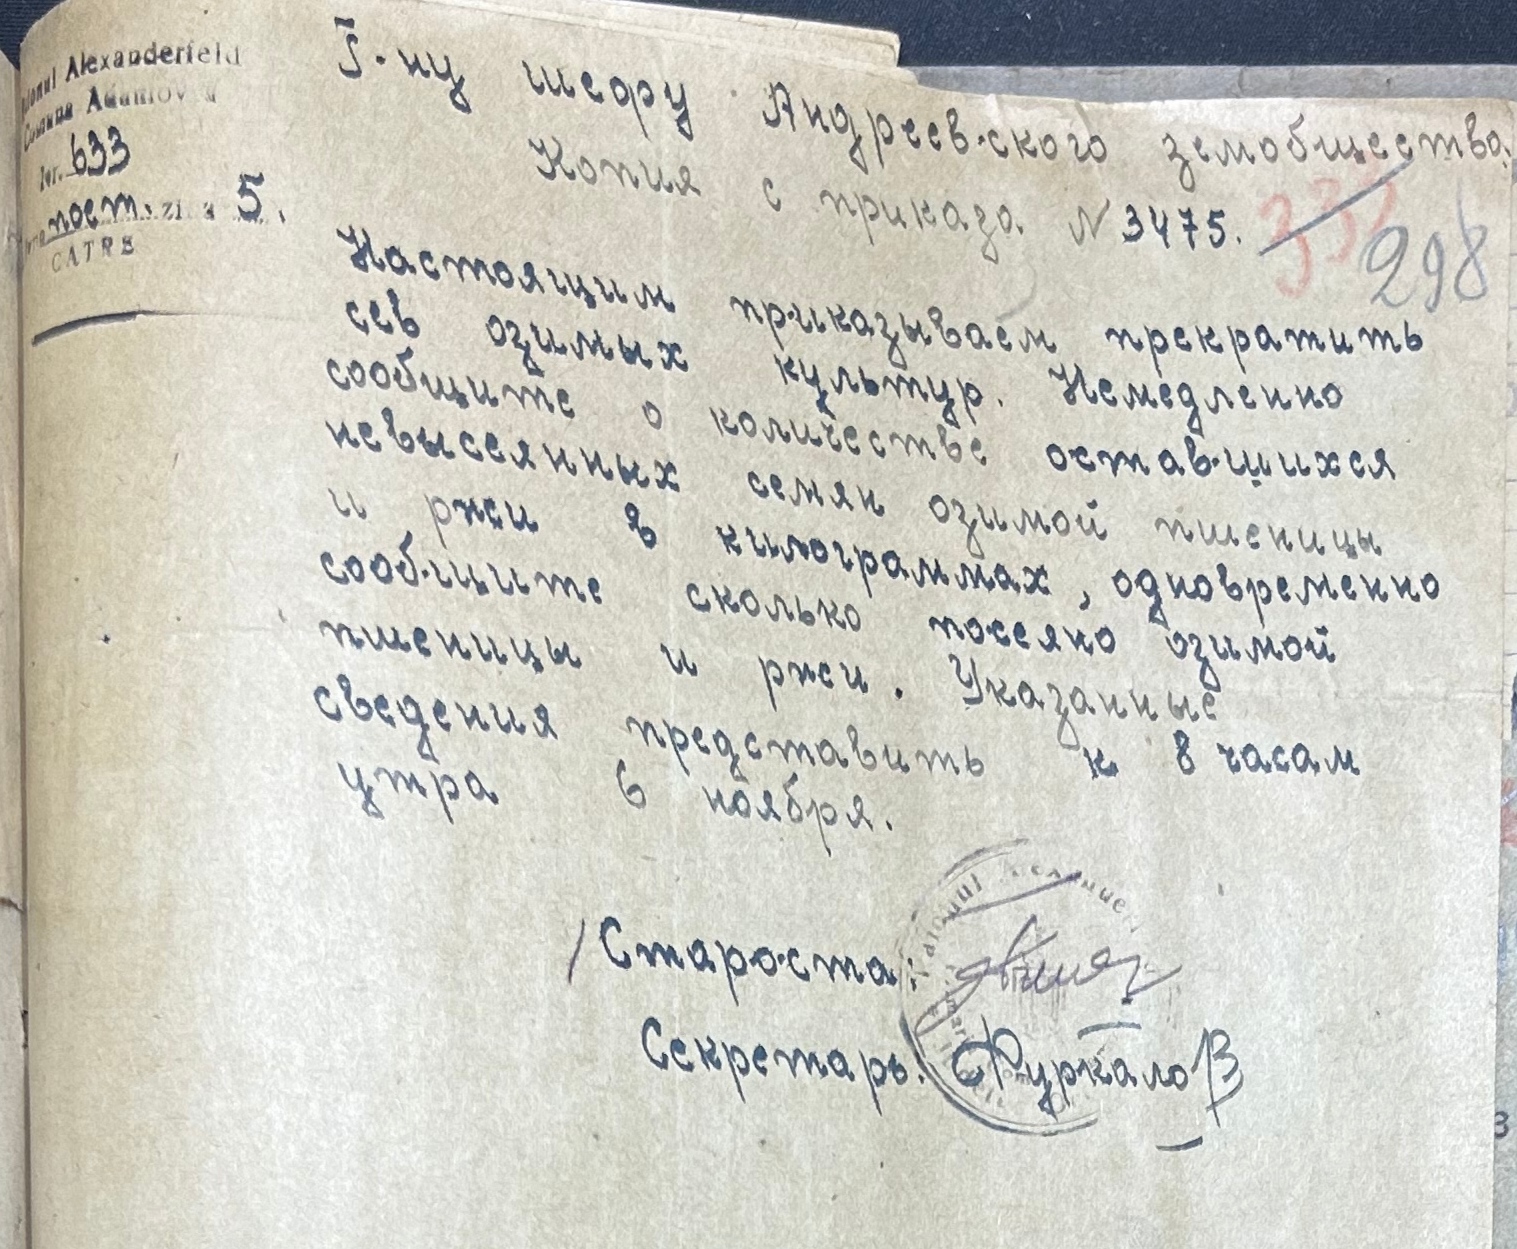 Alexanderfeld
Comuna Adamovca
Nr. 633
ноет. zi a 5.
CATRE
Г-ну шефу Андреевского земобщества.
Копия с приказа N 3475.
332
298
Настоящим приказываем прекратить
сев озимых культур. Немедленно
сообщите о количестве оставшихся
невысеянных семян озимой пшеницы
и ржи в килограммах, одновременно
сообщите сколько посеяно озимой
пшеницы и ржи. Указанные
сведения представить к 8 часам
утра 6 ноября.
/Староста:
Секретарь. Фуркало В